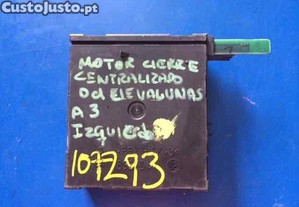 CustoJusto.pt
MOTOR CIERRE
CENTRALIZADO
Od ELEVALUNAS
A3
IZQUIERDO
107293